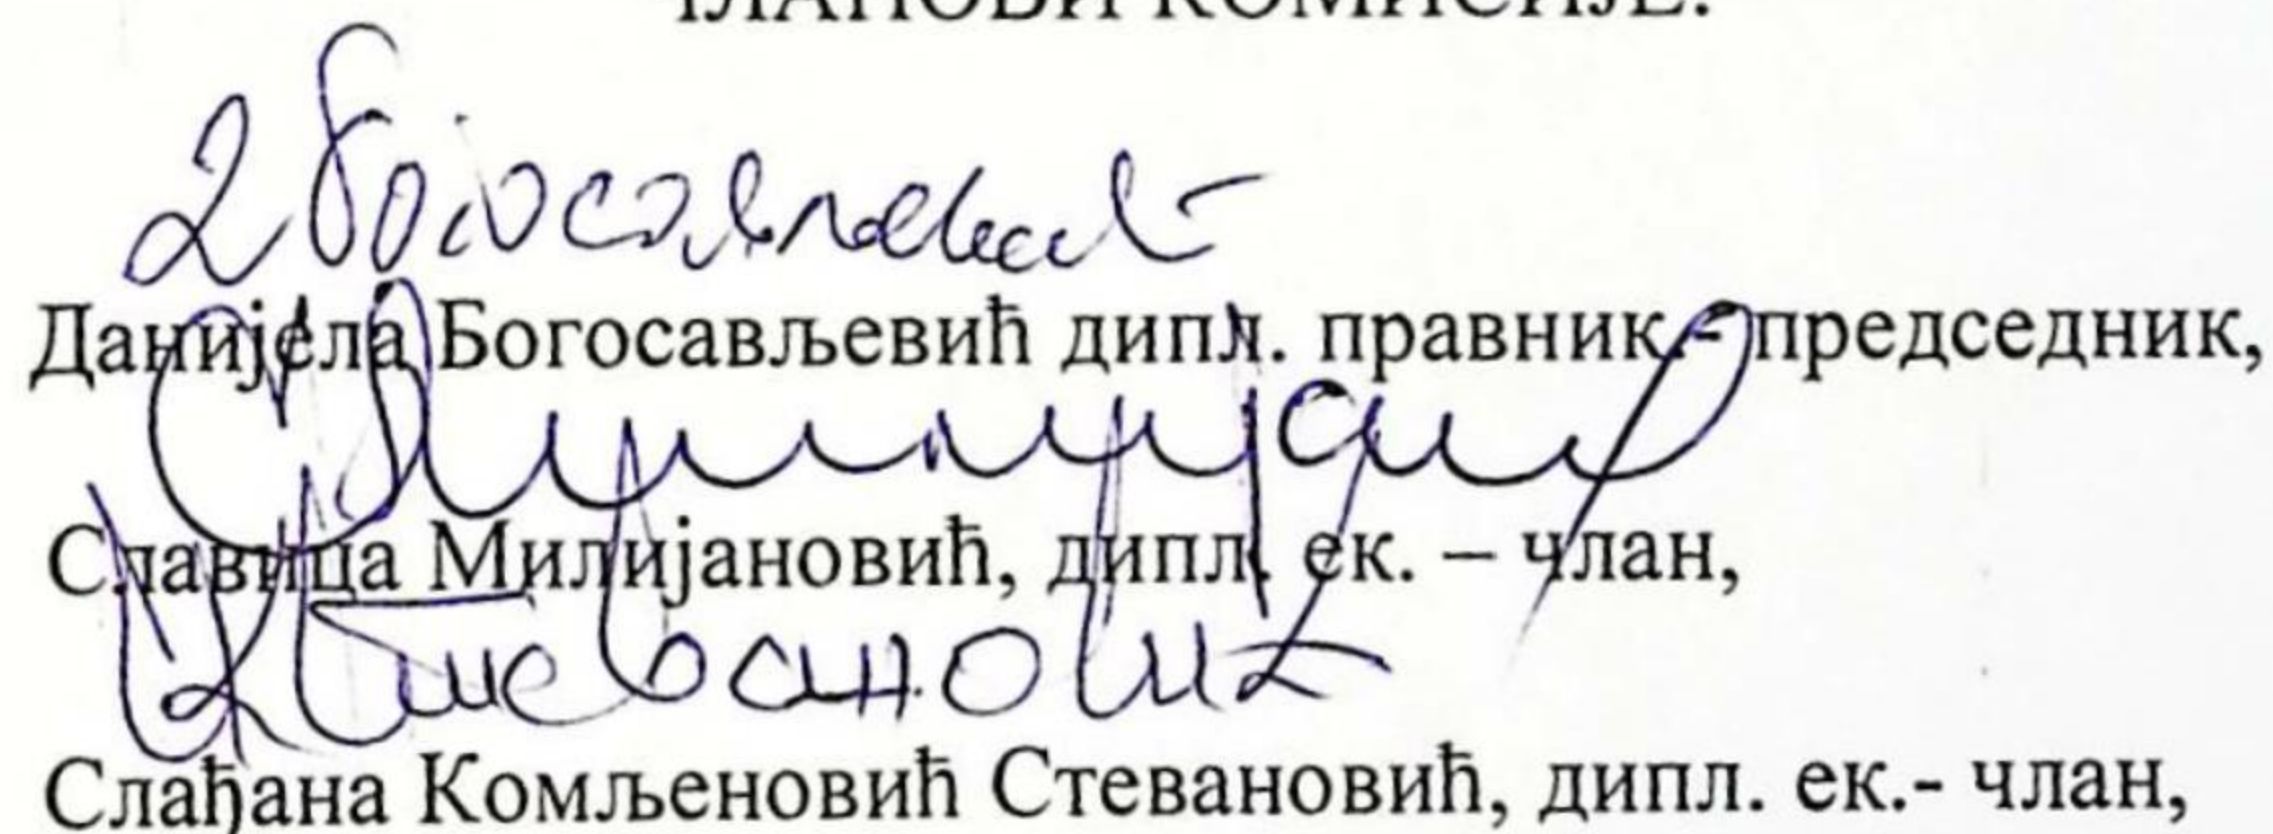 ЧЛАНОВИ КОМИСИЈЕ:
Данијела Богосављевић дипл. правник.- председник,
Славица Милијановић, дипл. ек. – члан,
Слађана Комљеновић Стевановић, дипл. ек.- члан,